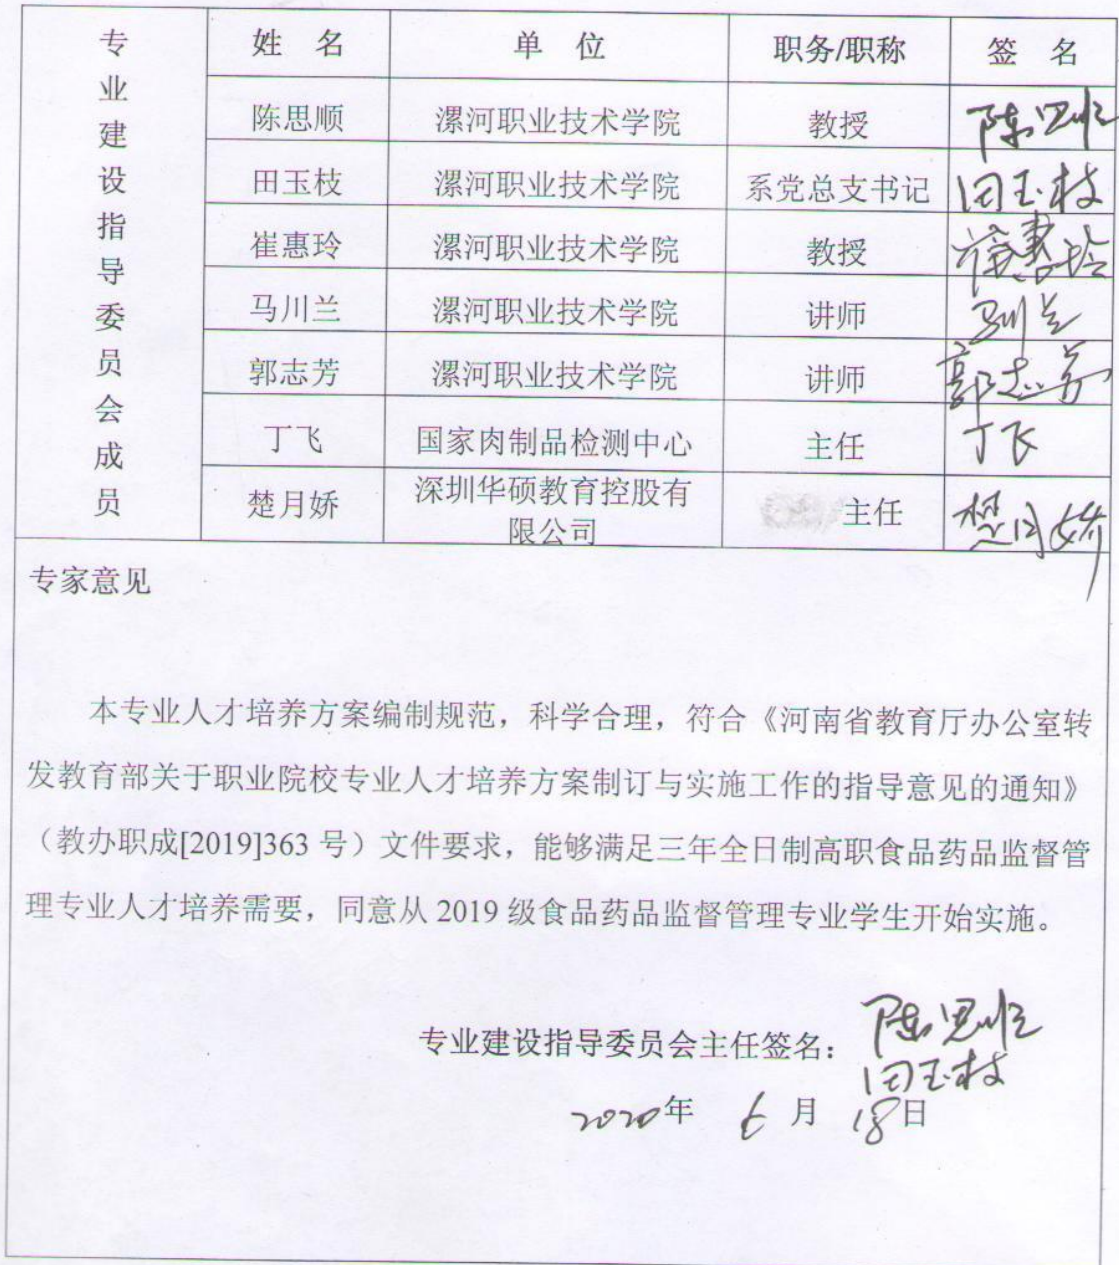 专业建设指导委员会成员
姓 名 单 位 职务/职称 签 名
陈思顺 漯河职业技术学院 教授 陈思顺
田玉枝 漯河职业技术学院 系党总支书记 田玉枝
崔惠玲 漯河职业技术学院 教授 崔惠玲
马川兰 漯河职业技术学院 讲师 马川兰
郭志芳 漯河职业技术学院 讲师 郭志芳
丁飞 国家肉制品检测中心 主任 丁飞
楚月娇 深圳华硕教育控股有
限公司 主任 楚月娇
专家意见
本专业人才培养方案编制规范，科学合理，符合《河南省教育厅办公室转
发教育部关于职业院校专业人才培养方案制订与实施工作的指导意见的通知》
（教办职成[2019]363 号）文件要求，能够满足三年全日制高职食品药品监督管
理专业人才培养需要，同意从 2019 级食品药品监督管理专业学生开始实施。
专业建设指导委员会主任签名：陈思顺
田玉枝
2020年 6 月 18日